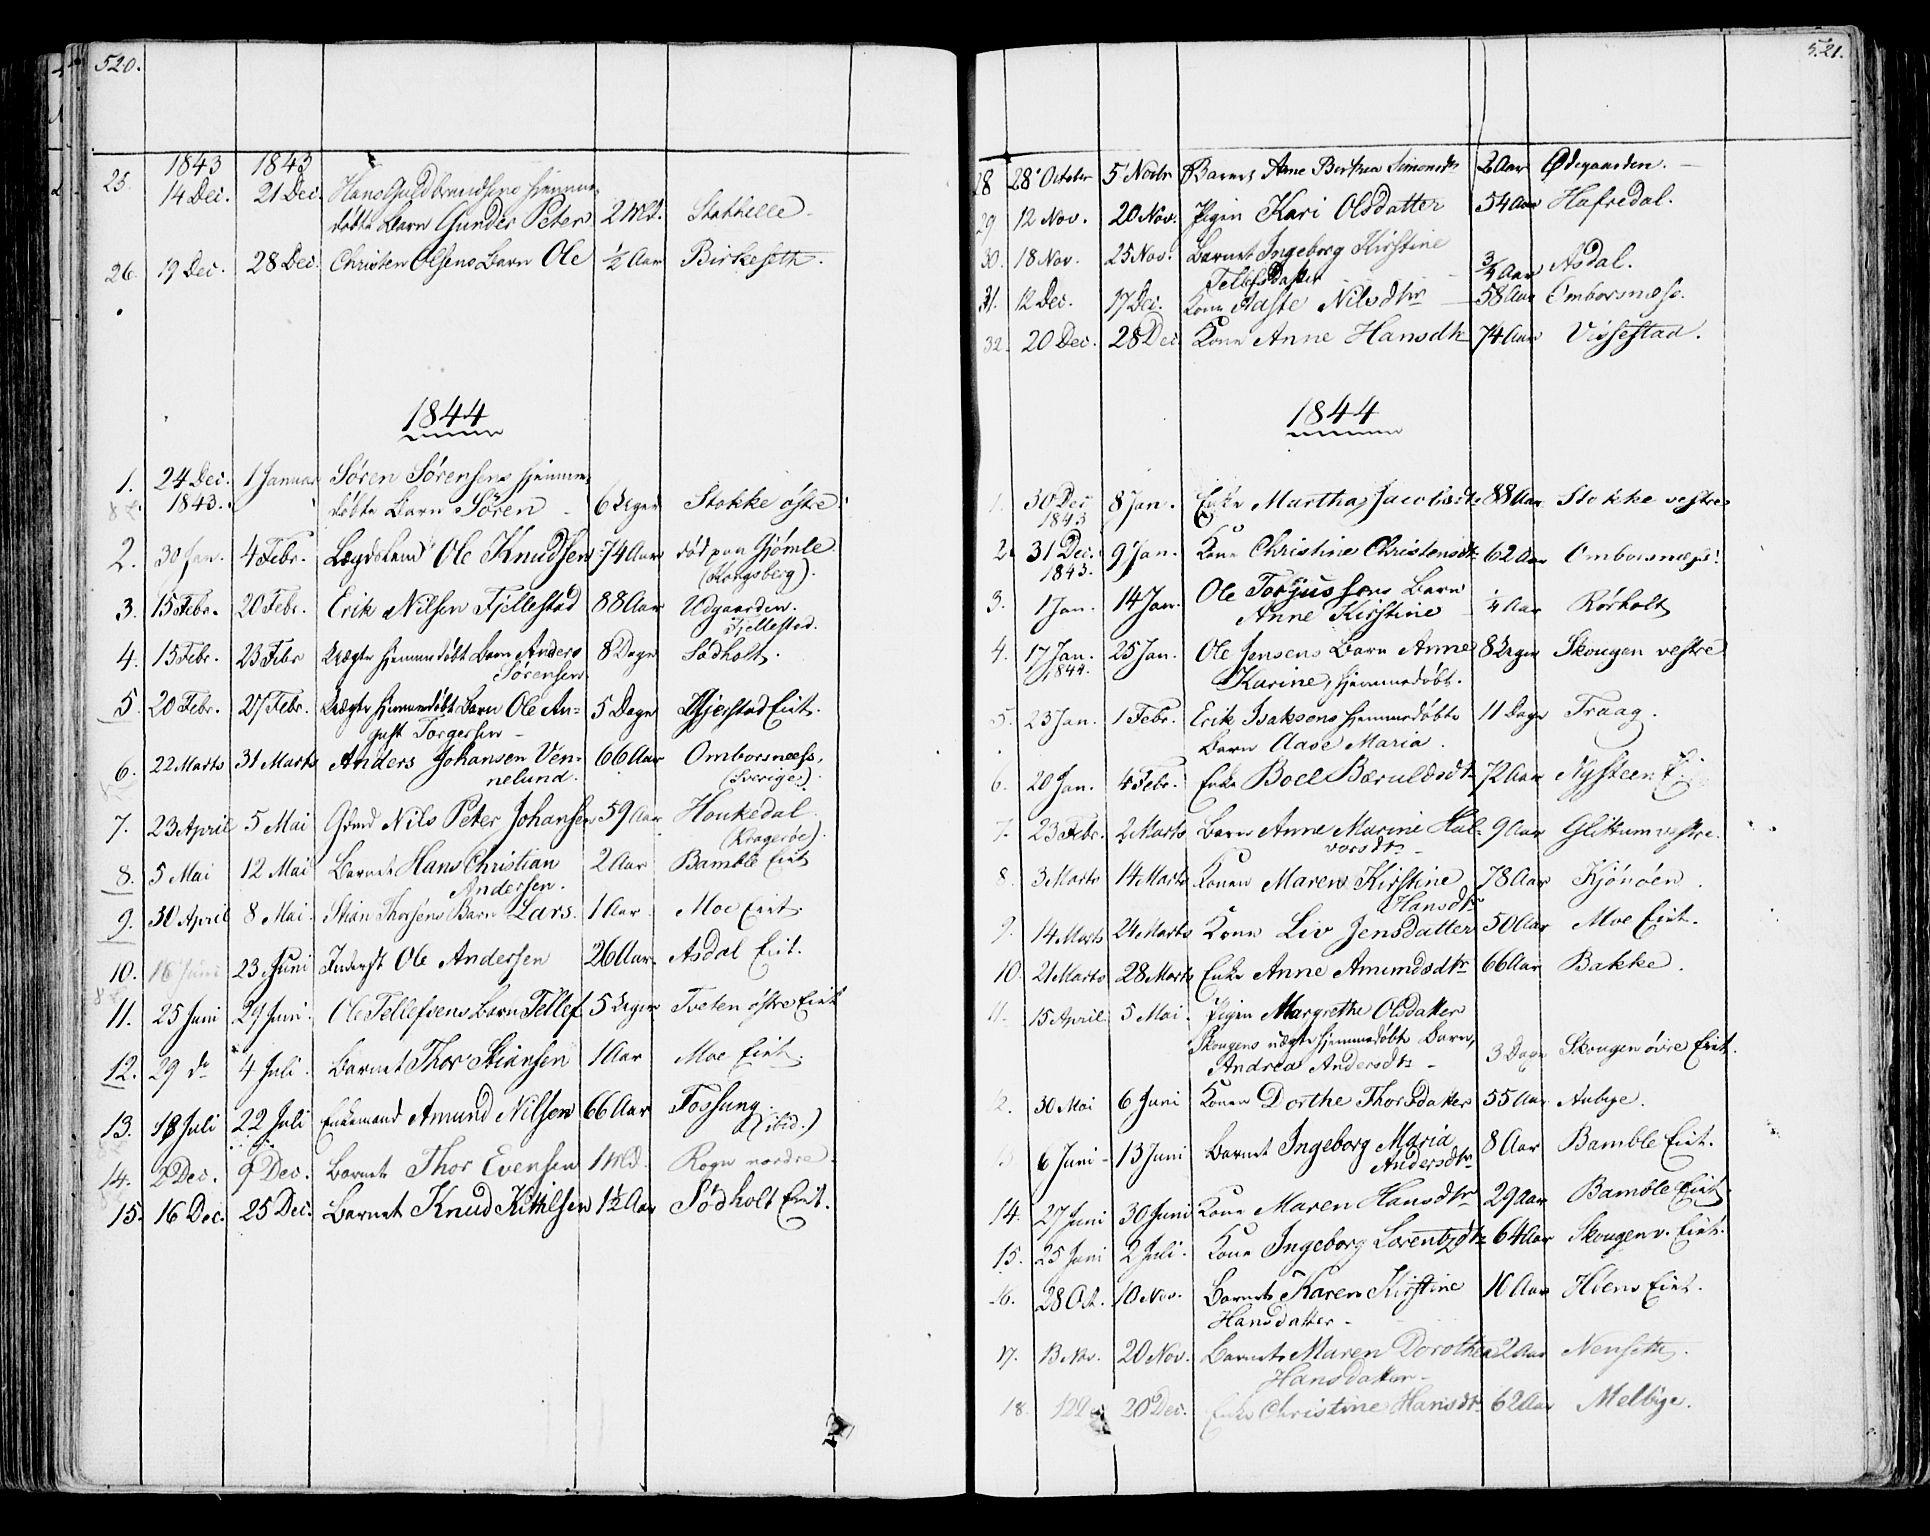 520.
1843 1843
25. 14 Dec. 21 Dec. Hans Guldbrandsens hjemme
døbte Barn Gunder Peter 2 Md. Stathelle
26. 19 Dec. 28 Dec. Christen Olsens Barn Ole ½ Aar Birkeseth.
1844
1. 24 Dec. 1 Januar Søren Sørensens hjemme
1843. døbte Barn Søren 6 Uger Stokke østre
2. 30 Jan. 4 Febr. Lægdslem Ole Knudsen 74 Aar død paa Gjømle
(Kongsberg).
3. 15 Febr. 20 Febr. Erik Nilsen Fjellestad 88 Aar Udgaarden.
Fjellestad.
4. 15 Febr. 23 Febr Uægte hjemmedøbt Barn Anders 8 Dage Sødholt.
Sørensen
5. 20 Febr. 27 Febr. Uægte hjemmedøbt Barn Ole Au- 5 Dage Hjerstad Eiet.
gust Torgersen
6. 22 Marts 31 Marts Anders Johansen Ven- 66 Aar Omborsnæss,
nelund. (Sverige).
7. 23 April 5 Mai Gbmd Nils Peter Johansen 59 Aar Haukedal
(Kragerøe).
8. 5 Mai 12 Mai Barnet Hans Christian 2 Aar Bamble Eiet
Andersen.
9. 30 April 8 Mai. Stian Thorsens Barn Lars. 1 Aar Moe Eiet.
10. 16 Juni 23 Juni Inderst Ole Andersen 26 Aar. Asdal Eiet.
11. 25 Juni 29 Juni. Ole Tellefsens Barn Tellef 5 Uger Tveten østre Eiet
12. 29 do 4 Juli. Barnet Thor Stiansen 1 Aar Moe Eiet.
13. 18 Juli 22 Juli Enkemand Amund Nilsen 66 Aar Fossung.
(ibid.)
14. 2 Dec. 9 Dec. Barnet Thor Evensen 1 Md. Rogn nordre.
15. 16 Dec. 25 Dec. Barnet Knud Kittilsen 1½ Aar Sødholt Eiet.
521.
28 28 Octobr 5 Novbr Barnet Anne Berthea Simonsdtr 2 Aar Ødegaarden.
29 12 Nov. 20 Nov. Pigen Kari Olsdatter 54 Aar Hafredal.
30. 18 Nov. 25 Nov. Barnet Ingeborg Kirstine
Tellefsdatter ¾ Aar Asdal.
31. 12 Dec. 17 Dec. Kone Aaste Nilsdtr 58 Aar Omborsnæss.
32. 20 Dec. 28 Dec Kone Anne Hansdtr 74 Aar Vissestad.
1844
1. 30 Dec 8 Jan. Enke Martha Jacobsdtr 88 Aar Stokke vestre
1843
2. 31 Dec. 9 Jan. Kone Christine Christensdtr 62 Aar Omborsnæss.
1843.
3. 1 Jan. 14 Jan. Ole Torjussens Barn
Anne Kirstine ¼ Aar Rørholt
4. 17 Jan. 25 Jan. Ole Jensens Barn Anne 8 Uger Skougen vestre
1844. Karine, hjemmedøbt.
5. 23 Jan. 1 Febr. Erik Isaksons hjemmedøbte 11 Dage Traag.
Barn Aase Maria.
6. 20 Jan. 4 Febr. Enke Boel Bæruldsdtr 72 Aar Nysteen Ei
7. 23 Febr. 2 Marts Barn Anne Marine Hal- 9 Aar Glittum vestre.
vorsdtr
8. 3 Marts 14 Marts Konen Maren Kirstine 78 Aar Kjønøen.
Hansdtr
9. 14 Marts 24 Marts Kone Liv Jensdatter 50 Aar Moe Eiet.
10. 21 Marts 28 Marts Enke Anne Amundsdtr 66 Aar Bakke.
11. 15 April 5 Mai. Pigen Margrethe Olsdatter
Skougens uægte hjemmedøbte Barn,
Andrea Andersdtr 3 Dage Skougen øvre Eiet.
2. 30 Mai 6 Juni Konen Dorthe Thorsdatter 55 Aar Aabye.
13 6 Juni 13 Juni Barnet Ingeborg Maria 8 Aar Bamble Eiet.
Andersdtr
14. 27 Juni 30 Juni Kone Maren Hansdtr 29 Aar Bamble Eiet.
15. 25 Juni 2 Juli. Kone Ingeborg Lorentzdtr 64 Aar Skougen v. Eiet.
16. 28 Oct. 10 Nov. Barnet Karen Kirstine 10 Aar Høens Eiet.
Hansdatter
17. 13 Nov. 20 Nov. Barnet Maren Dorothea 2 Aar Nenseth.
Hansdatter
18. 12 Dec 20 Dec. Enke Christine Hansdtr 62 Aar Melbye.